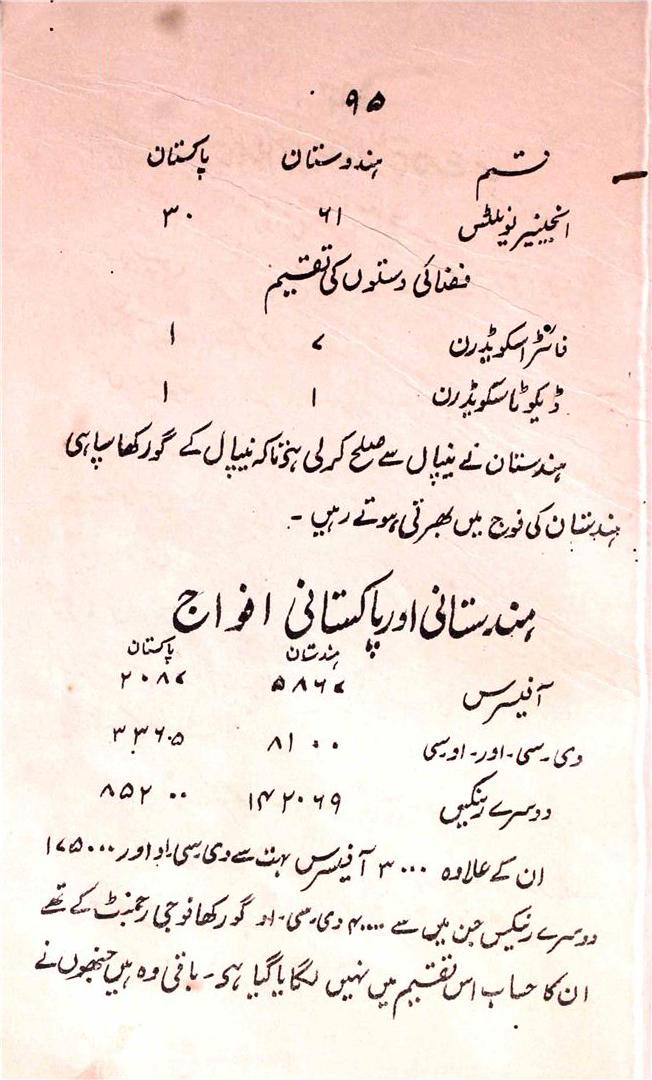 ۹۵
قسم ہندوستان پاکستان
انجینیر یونٹس ۶۱ ۳۰
فضائی دستوں کی تقسیم
فائٹر اسکویڈرن ۷ ۱
ڈیکوٹا سکویڈرن ۱ ۱
ہندستان نے نیپال سے صلح کرلی ہے تاکہ نیپال کے گورکھا سپاہی
ہندستان کی فوج میں بھرتی ہوتے رہیں ۔
ہندستانی اور پاکستانی افواج
ہندستان پاکستان
آفیسرس ۵۸۶۷ ۲۰۸۷
وی ۔ سی ۔ اور ۔ او سی ۸۱۰۰ ۳۳۶۰۵
دوسرے رینکیں ۱۴۲۰۶۹ ۸۵۲۰۰
ان کے علاوہ ۳۰۰۰ آفیسرس بہت سے وی سی او اور ۱۷۵۰۰۰
دوسرے رینکیس جن میں سے ۴۰۰۰۰ وی ۔ سی ۔ او گورکھا فوجی رجمنٹ کے تھے
ان کا حساب اس تقسیم میں نہیں لگایا گیا ہے ۔ باقی وہ ہیں جنھوں نے